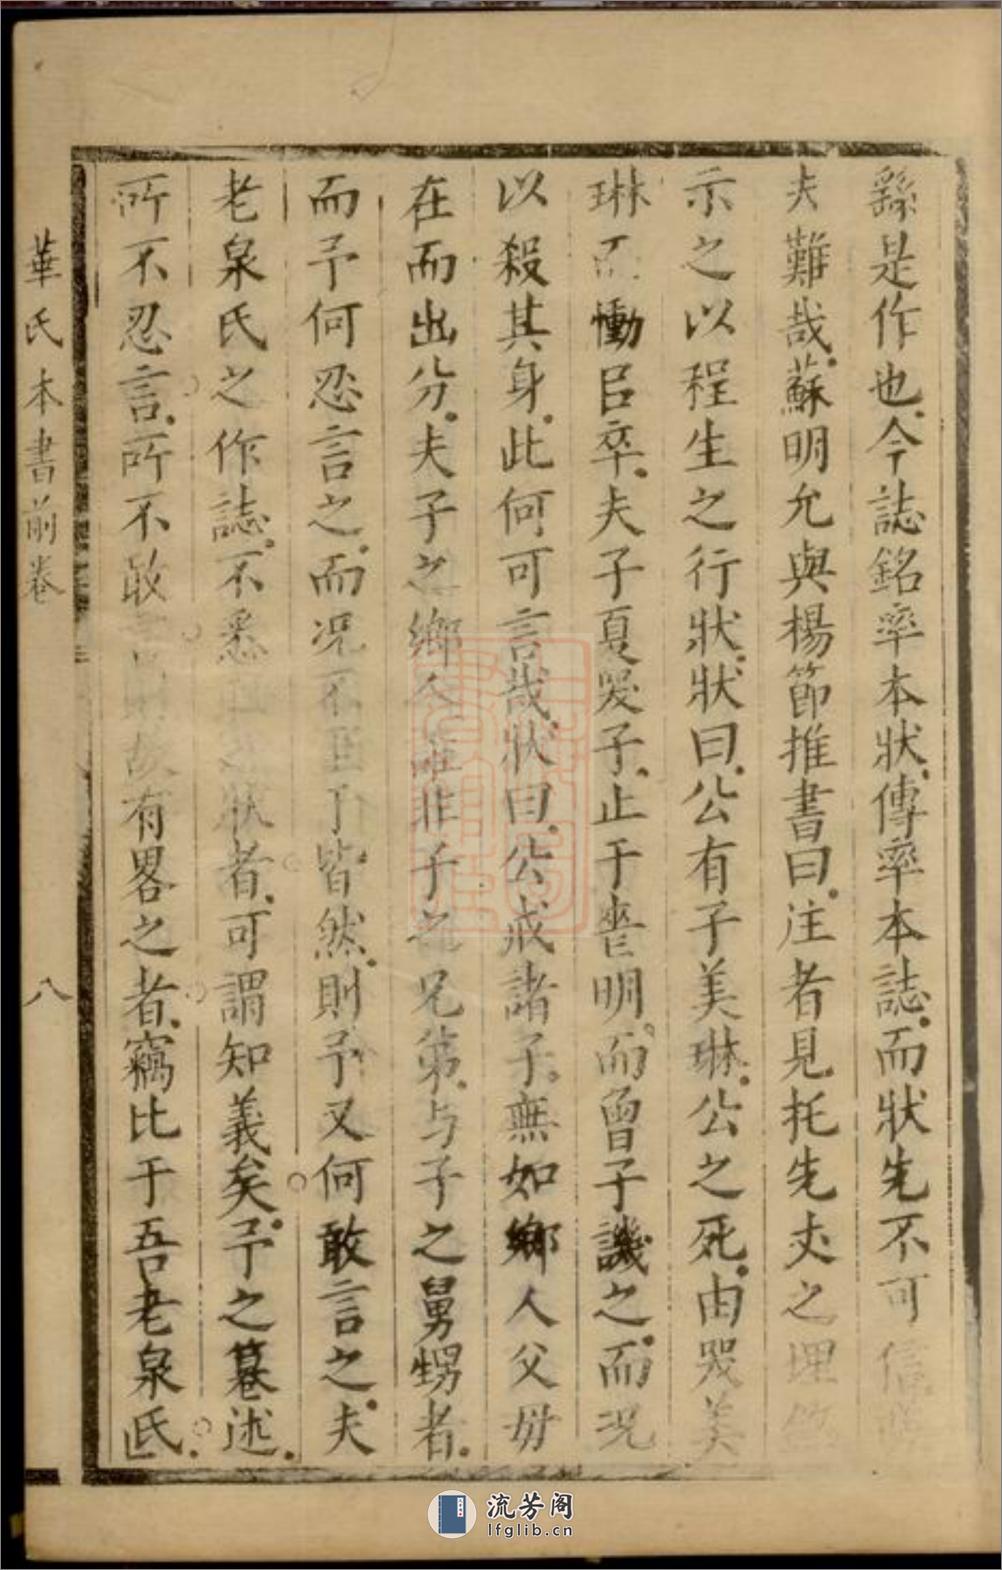 繇是作也今誌銘率本狀傳率本誌而狀先不可信
夫難哉蘇明允與楊節推書曰注者見托先丈之埋
示之以程生之行狀狀曰公有子美琳公之死由哭美
琳而慟以卒夫子夏哭子止于喪明而曾子譏之而況
以殺其身此何可言哉狀曰公戒諸子無如鄉人父母
在而出分夫子之鄉人誰非子之兄第与子之舅甥者
而予何忍言之而況不至于皆然則予又何敢言之夫
老泉氏之作誌不悉狀者可謂知義矣予之纂述
所不忍言所不敢故有畧之者竊比于吾老泉氏
華氏本書前卷
八
流芳阁
lfglib.cn